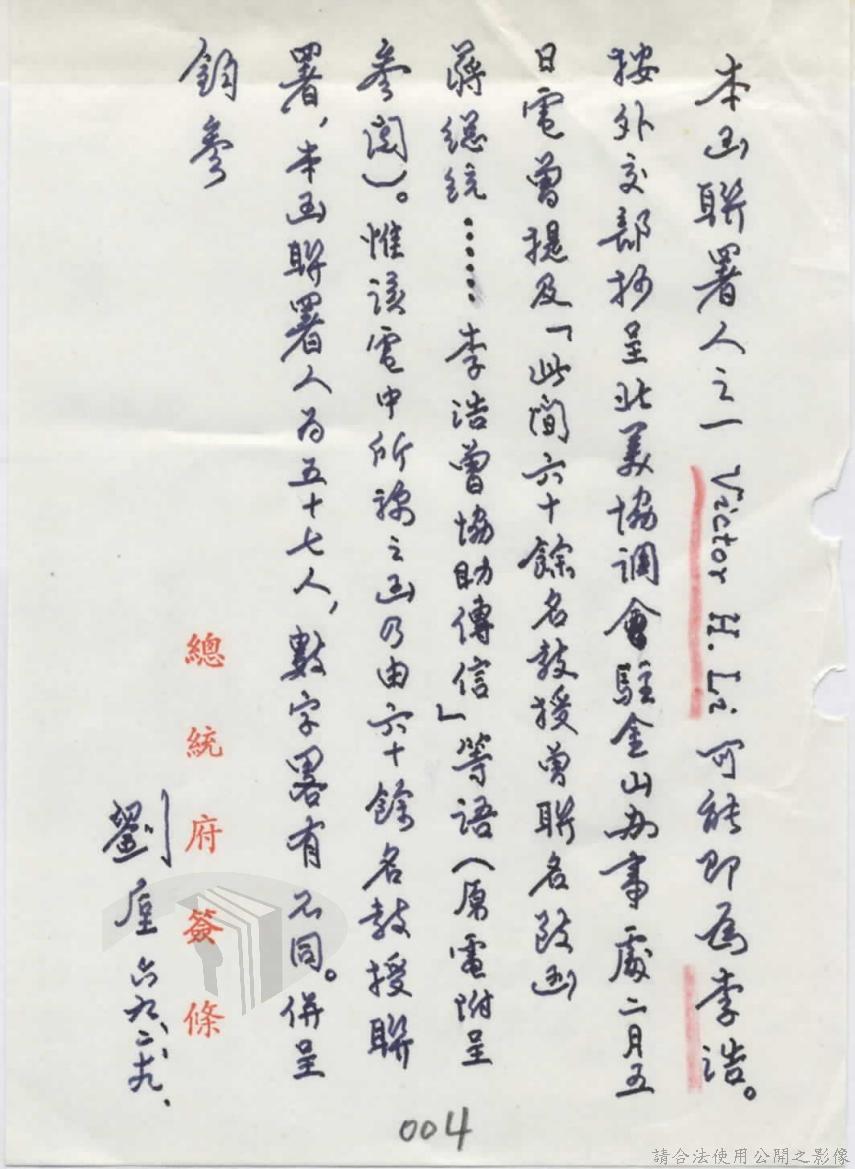 本函聯署人之一 Victor H. Li 可能即為李浩。
按外交部抄呈北美協調會駐金山办事處二月五
日電曾提及「此間六十餘名教授曾聯名致函
蔣總統……李浩曾協助傳信」等語(原電附呈
參閱)。惟該電中所称之函乃由六十餘名教授聯
署，本函聯署人为五十七人，數字畧有不同。併呈
鈞參
總統府簽條
劉垕 六九、二、十九、
004
請合法使用公開之影像